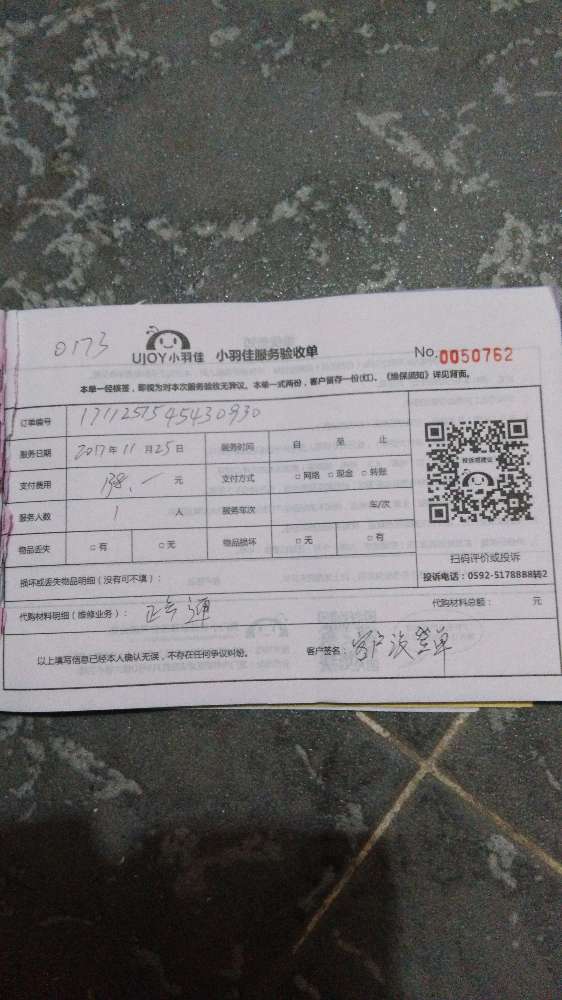 0173
UJOY小羽佳 小羽佳服务验收单 No.0050762
本单一经核签，即视为对本次服务验收无异议。本单一式两份，客户留存一份(红)。《维保须知》详见背面。
订单编号 1711251545430930
服务日期 2017年11月25日 服务时间 自 至 止
支付费用 138.一 元 支付方式 □网络 □现金 □转账
服务人数 1 人 服务车次 车/次
物品丢失 □有 □无 物品损坏 □无 □有
投诉或建议
扫码评价或投诉
投诉电话：0592-5178888转2
损坏或丢失物品明细（没有可不填）：
代购材料明细（维修业务）： 代购材料总额： 元
以上填写信息已经本人确认无误，不存在任何争议纠纷。 客户签名：客户没登单